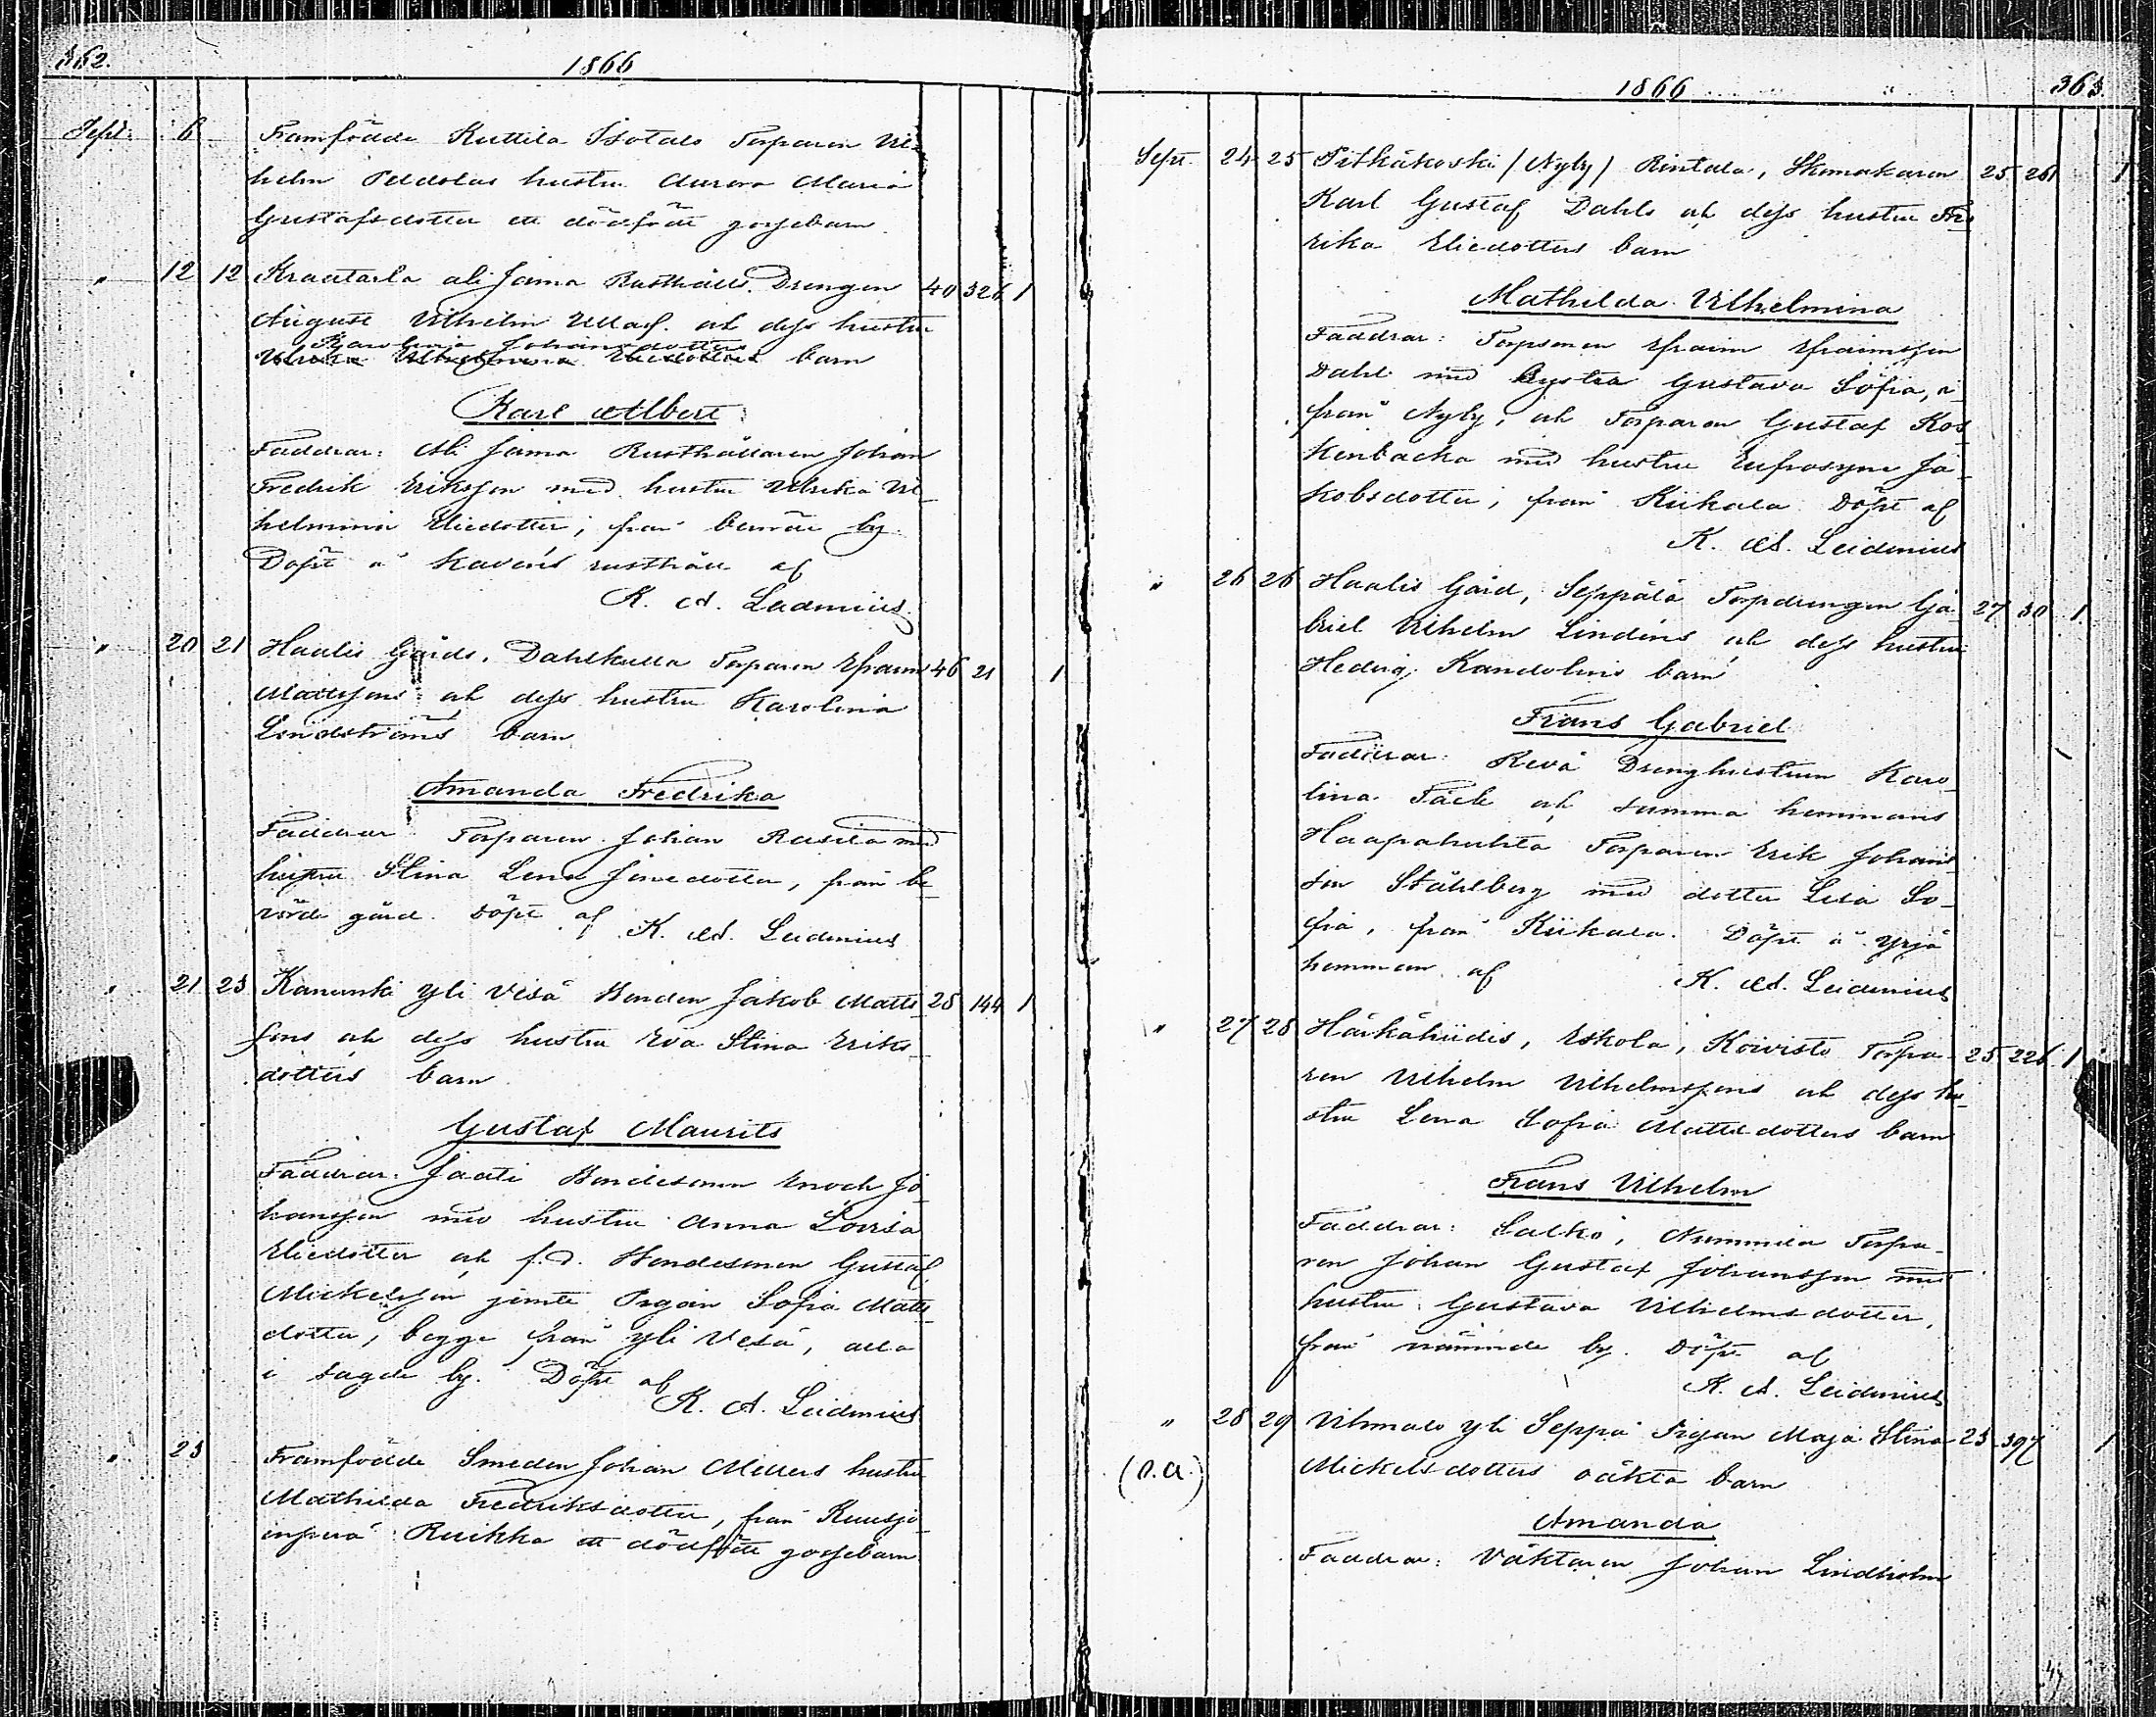 362.
1866
Sept. 6 Framfödde Kuttila Isotalo Torparen Vil-
helm Peldolas hustru Aurora Maria
Gustafsdotter ett dödfödt gossebarn.
" 12 12 Kraatarla ali Jama Rusthålls Drengen 40 326 1
August Vilhelm Ullas. och dess hustru
Karolina Johansdotters
Ulrika Vilhelmina Eliedotters barn
Karl Albert
Faddrar: Ali Jama Rusthållaren Johan
Fredrik Eriksson med hustru Ulrika Vil-
helmina Eliedotter, från berörde by.
Döpt å Kavens rusthåll af
K. A. Leidenius.
" 20 21 Haalis Gårds, Dahlkulla Torparen Efraim 46 21 1
Mattssons och dess hustru Karolina
Lindströms barn
Amanda Fredrika
Faddrar Torparen Johan Rasila med
hustru Stina Lena Jonedotter, från be-
rörde gård. Döpt af K. A. Leidenius
" 21 23 Kanunki yli Vesä Bonden Jakob Matts- 28 144 1
sons och dess hustru Eva Stina Eriks-
dotters barn.
Gustaf Maurits
Faddrar: Jaati Bondesonen Enoch Jo-
hansson med hustru Anna Lovisa
Eliedotter och f.d. Bondesonen Gustaf
Mickelsson jemte Pigan Sofia Matts-
dotter, begge från yli Vesä, alla
i sagde by. Döpt af
K. A. Leidenius
" 23 Framfödde Smeden Johan Mellers hustru
Mathilda Fredriksdotter, från Kuusjo-
enperä Ruikka ett dödfödt gossebarn
1866
363
Sept. 24 25 Pitkäkoski /Nyby/ Rintala, Skomakaren 25 261 1
Karl Gustaf Dahls och dess hustru Fre-
rika Eliedotters barn
Mathilda Vilhelmina
Faddrar: Torpsonen Efraim Efraimsson
Dahl med Systra Gustava Sofia,
från Nyby, och Torparen Gustaf Kos-
kenbacka med hustru Eufrosyne Ja-
kobsdotter, från Kiikala. Döpt af
K. A. Leidenius
" 26 26 Haalis Gård, Seppälä Torpdrengen Ga- 27 30 1
briel Vilhelm Lindéns och dess hustru
Hedvig Kandolins barn
Frans Gabriel
Faddrar: Revä Drenghustrun Karo-
lina Täck och samma hemmans
Haapahuhta Torparen Erik Johans-
son Ståhlberg med dotter Lisa So-
fia, från Kiikala. Döpt å Yrjä
hemman af K. A. Leidenius
" 27 28 Härkähiidis, Eskola, Koivisto Torpa- 25 226 1
ren Vilhelm Vilhelmssons och dess hu-
stru Lena Sofia Mattsdotters barn
Frans Vilhelm
Faddrar: Salko, Nummila Torpa-
ren Johan Gustaf Johansson med
hustru Gustava Vilhelmsdotter,
från nämnde by. Döpt af
K. A. Leidenius
" 28 29 Vihmalo yli Seppä Pigan Maja Stina 23 397 1
(o.ä.) Mickelsdotters oäkta barn
Amanda
Faddrar: Väktaren Johan Lindholm